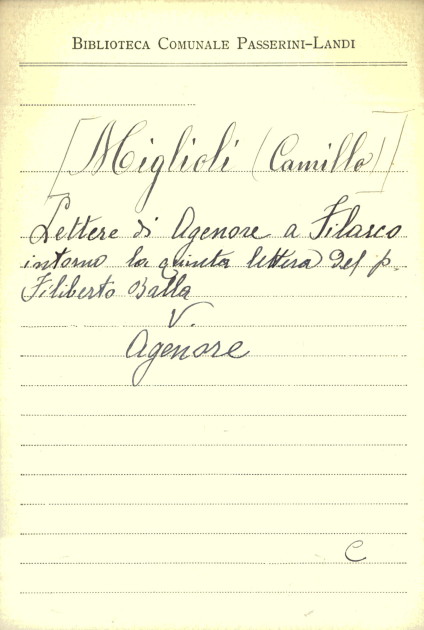 BIBLIOTECA COMUNALE PASSERINI-LANDI
[Miglioli (Camillo)]
Lettere di Agenore a Filarco
intorno la quinta lettera del p.
Filiberto Balla
V.
Agenore
C